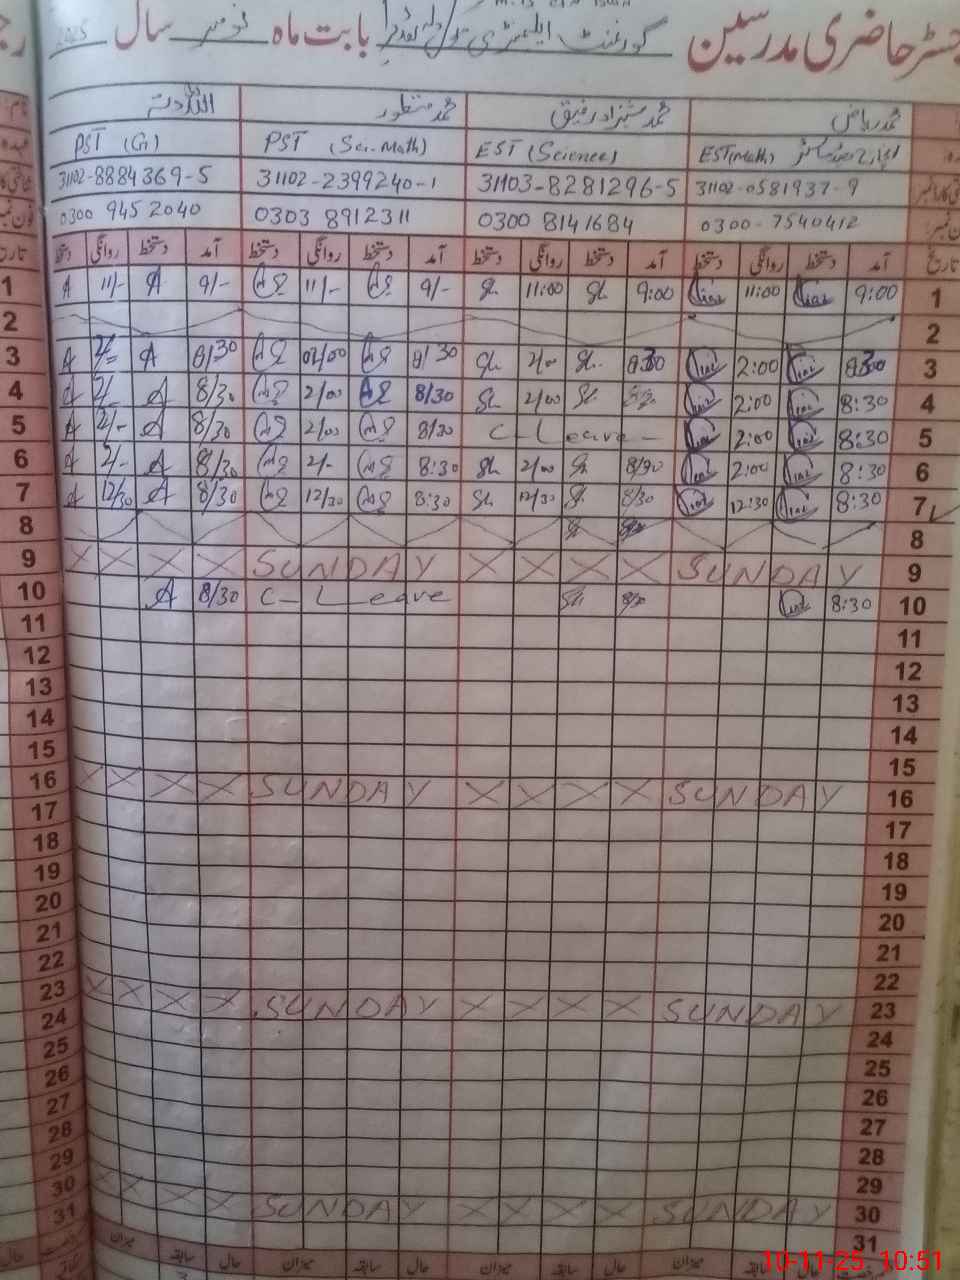 جسٹر حاضری مدرسین گورنمنٹ ایلیمنٹری بابت ماہ نومبر سال 2025
محمد ریاض محمد شہزاد رفیق محمد منظور اللہ دتہ
EST(Math) EST (Science) PST (Sci-Math) PST (G)
31102-0581937-9 31103-8281296-5 31102-2399240-1 31102-8884369-5
0300-7540412 0300 8141684 0303 8912311 0300 9452040
تاریخ آمد دستخط روانگی دستخط آمد دستخط روانگی دستخط آمد دستخط روانگی دستخط آمد دستخط روانگی دستخط
1 9:00 11:00 9:00 Sh 11:00 Sh 9/- 11/- 9/- A 11/- A 1
2 2
3 8:30 2:00 8:30 Sh 2/00 Sh 8/30 02/00 8/30 A 2/- A 3
4 8:30 2:00 Sh 2/00 Sh 8/30 2/00 8/30 A 2/- A 4
5 8:30 2:00 C-Leave- 8/30 2/00 8/30 A 2/- A 5
6 8:30 2:00 8/30 Sh 2/00 Sh 8:30 2/- 8/30 A 2/- A 6
7 8:30 12:30 8/30 Sh 12/30 Sh 8:30 12/30 8/30 A 12/30 A 7
8 8
9 SUNDAY X X X X SUNDAY X X X X 9
10 8:30 8/30 Sh C-Leave 8/30 A 10
11 11
12 12
13 13
14 14
15 15
16 SUNDAY X X X X SUNDAY X X X X 16
17 17
18 18
19 19
20 20
21 21
22 22
23 SUNDAY X X X X SUNDAY X X X X 23
24 24
25 25
26 26
27 27
28 28
29 29
30 SUNDAY X X X X SUNDAY X X X X 30
31 31
حال سابقہ میزان حال سابقہ میزان حال سابقہ میزان
10-11-25 10:51